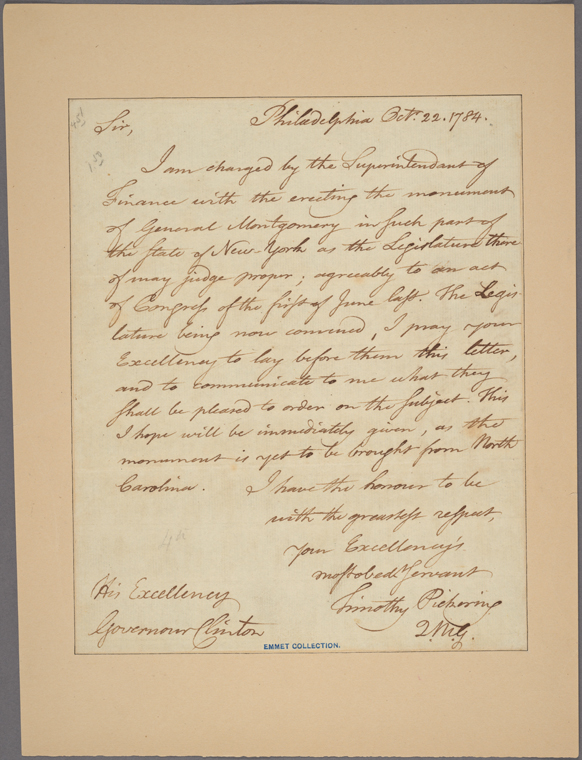 Philadelphia Octr. 22. 1784.
Sir,
I am charged by the Superintendant of
Finance with the erecting the monument
of General Montgomery in such part of
the State of New-York as the Legislature there
of may judge proper; agreeably to an act
of Congress of the first of June last. The Legis-
lature being now convened, I pray your
Excellency to lay before them this letter,
and to communicate to me what they
shall be pleased to order on the subject. This
I hope will be immediately given, as the
monument is yet to be brought from North
Carolina. I have the honour to be
with the greatest respect,
your Excellency's
most obedt servant
Timothy Pickering
Q.M.G.
His Excellency
Governour Clinton
EMMET COLLECTION.